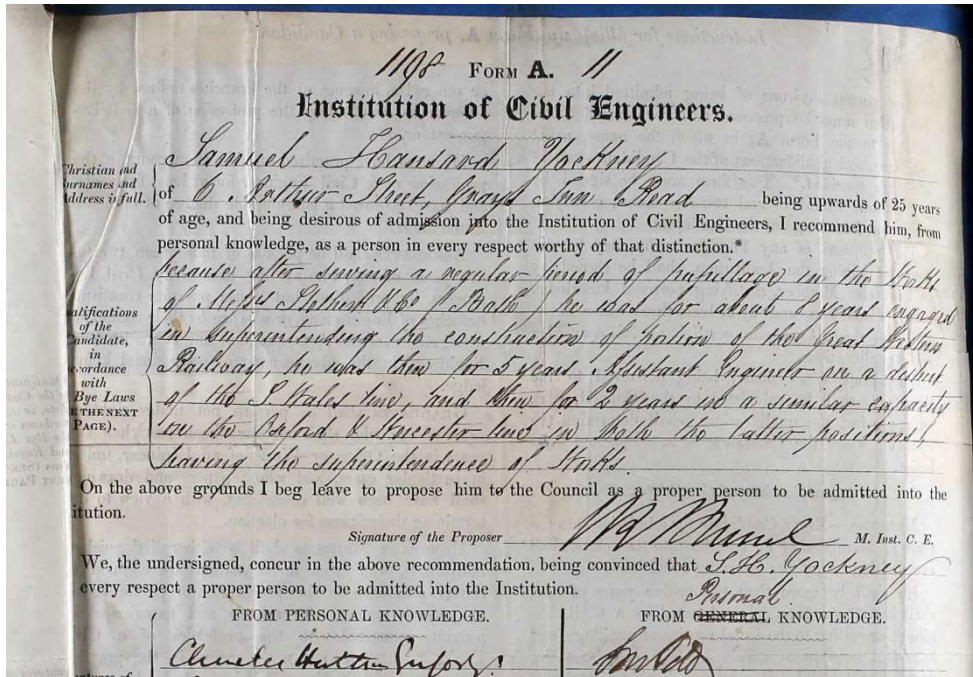 1198 FORM A. 11
Institution of Civil Engineers.
Christian and
urnames and
ddress in full.
Samuel Hansard Yockney
of 6 Arthur Street, Grays Inn Road being upwards of 25 years
of age, and being desirous of admission into the Institution of Civil Engineers, I recommend him, from
personal knowledge, as a person in every respect worthy of that distinction.*
alifications
of the
andidate,
in
cordance
with
Bye Laws
E THE NEXT
PAGE).
because after serving a regular period of pupillage in the Works
of Messrs Stothert & Co of Bath he was for about 8 years engaged
in superintending the construction of portion of the Great Western
Railway, he was then for 5 years Assistant Engineer on a district
of the S Wales line, and then for 2 years in a similar capacity
on the Oxford & Worcester line in both the latter positions
having the superintendence of Works.
On the above grounds I beg leave to propose him to the Council as a proper person to be admitted into the
itution.
Signature of the Proposer M. Inst. C. E.
We, the undersigned, concur in the above recommendation, being convinced that S. H. Yockney
every respect a proper person to be admitted into the Institution.
Personal
FROM PERSONAL KNOWLEDGE. FROM GENERAL KNOWLEDGE.
Charles Hutton Gregory